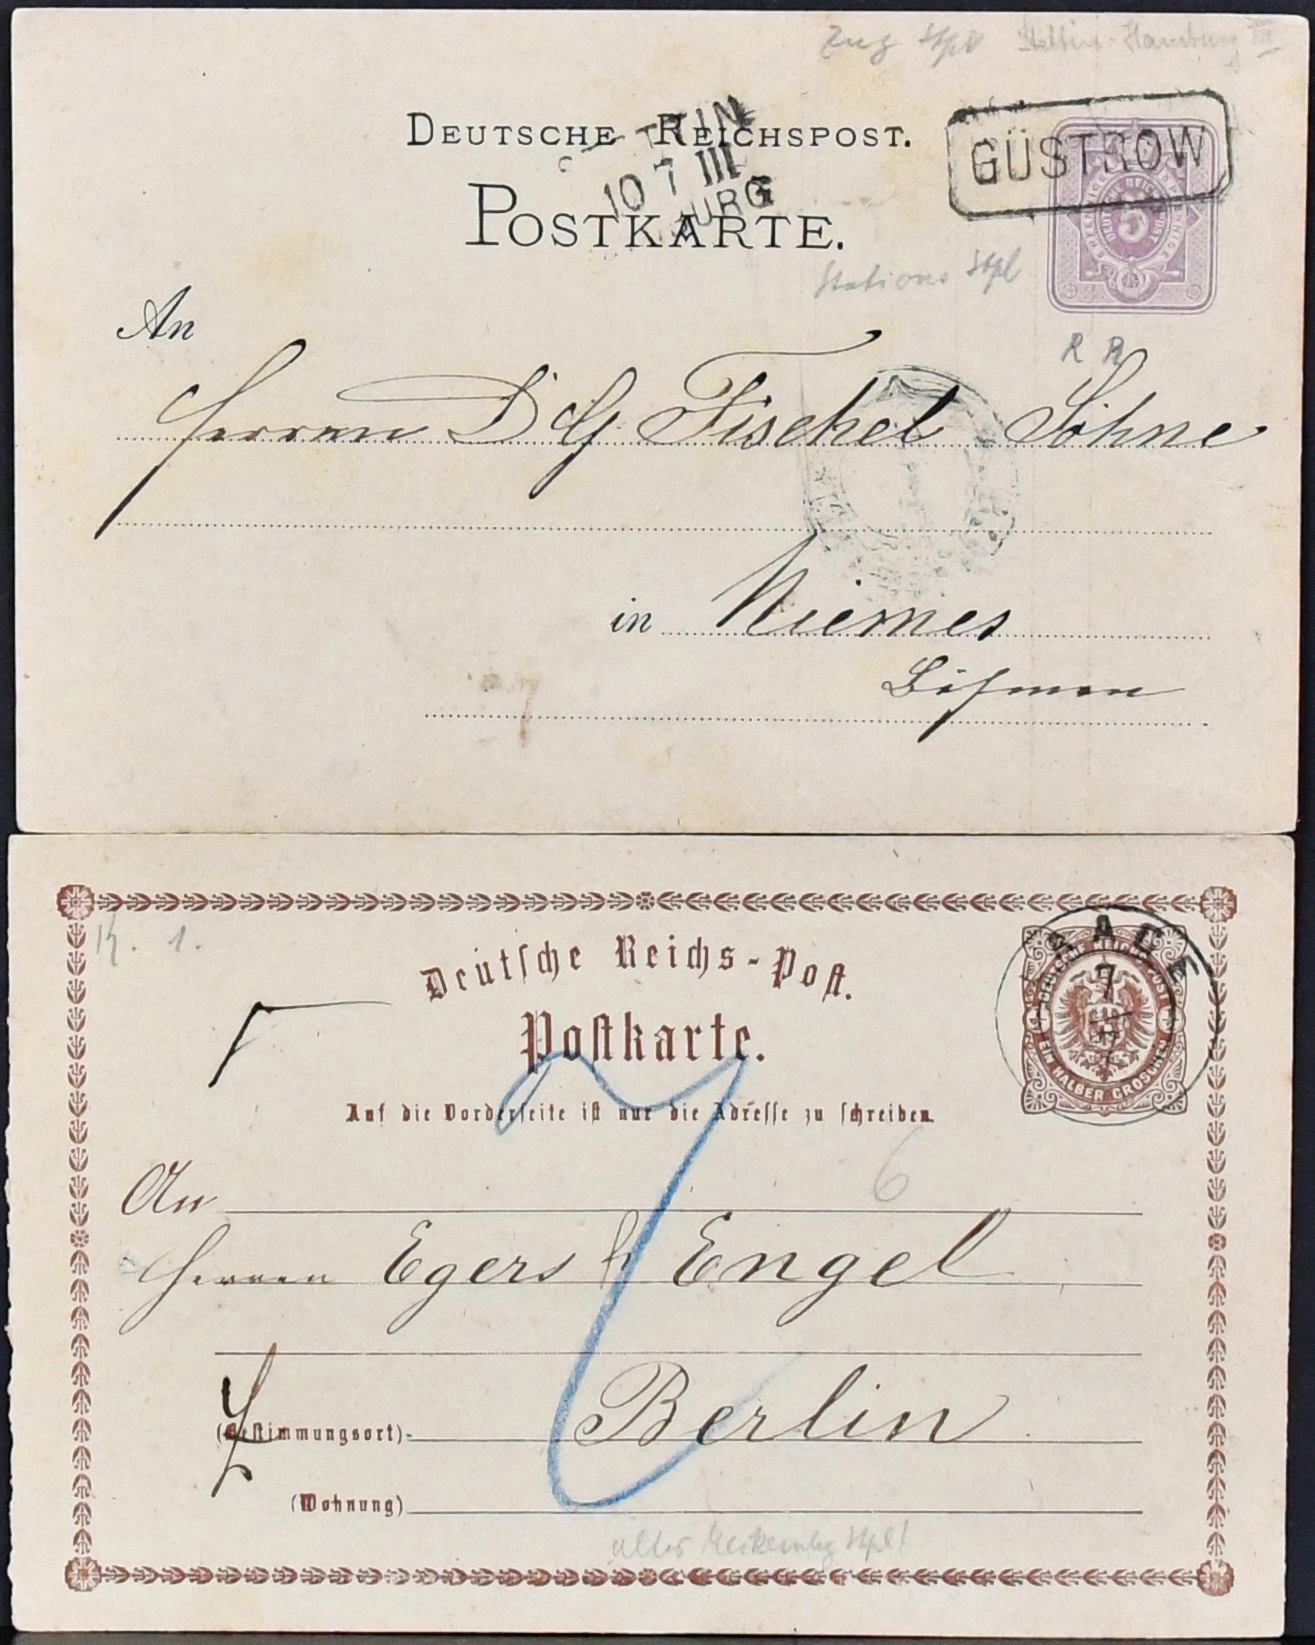 Zug Stpl Stettin-Hamburg III
DEUTSCHE REICHSPOST.
STETTIN
10 7 III
BURG
GÜSTROW
POSTKARTE.
Stations Stpl
DEUTSCHE REICHSPOST
5
R R
An
Herren D G Fischel Söhne
in Niemes
Böhmen
K. 1.
LAGE
7
DEUTSCHE REICHSPOST
EIN HALBER GROSCHEN
Deutsche Reichs-Post.
Postkarte.
Auf die Vorderseite ist nur die Adresse zu schreiben.
6
An
Herren Egers & Engel
(Bestimmungsort) Berlin
(Wohnung)
alter Meckenbg Stpl!